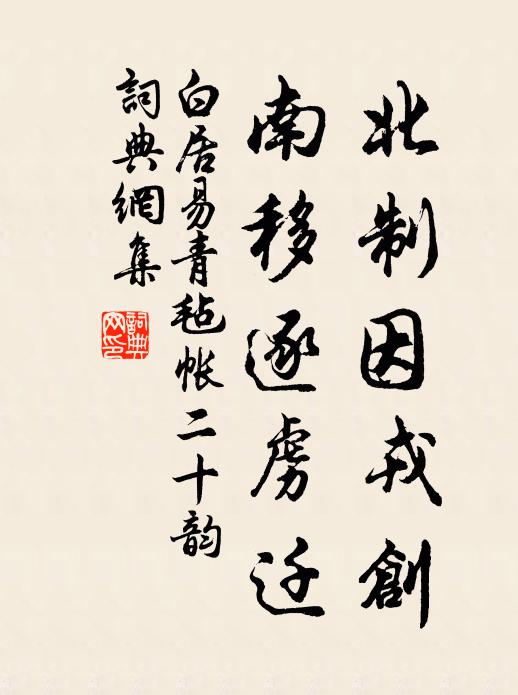 北制因戎創
南移逐虜迁
白居易青毡帐二十韵
詞典網集
詞典网印